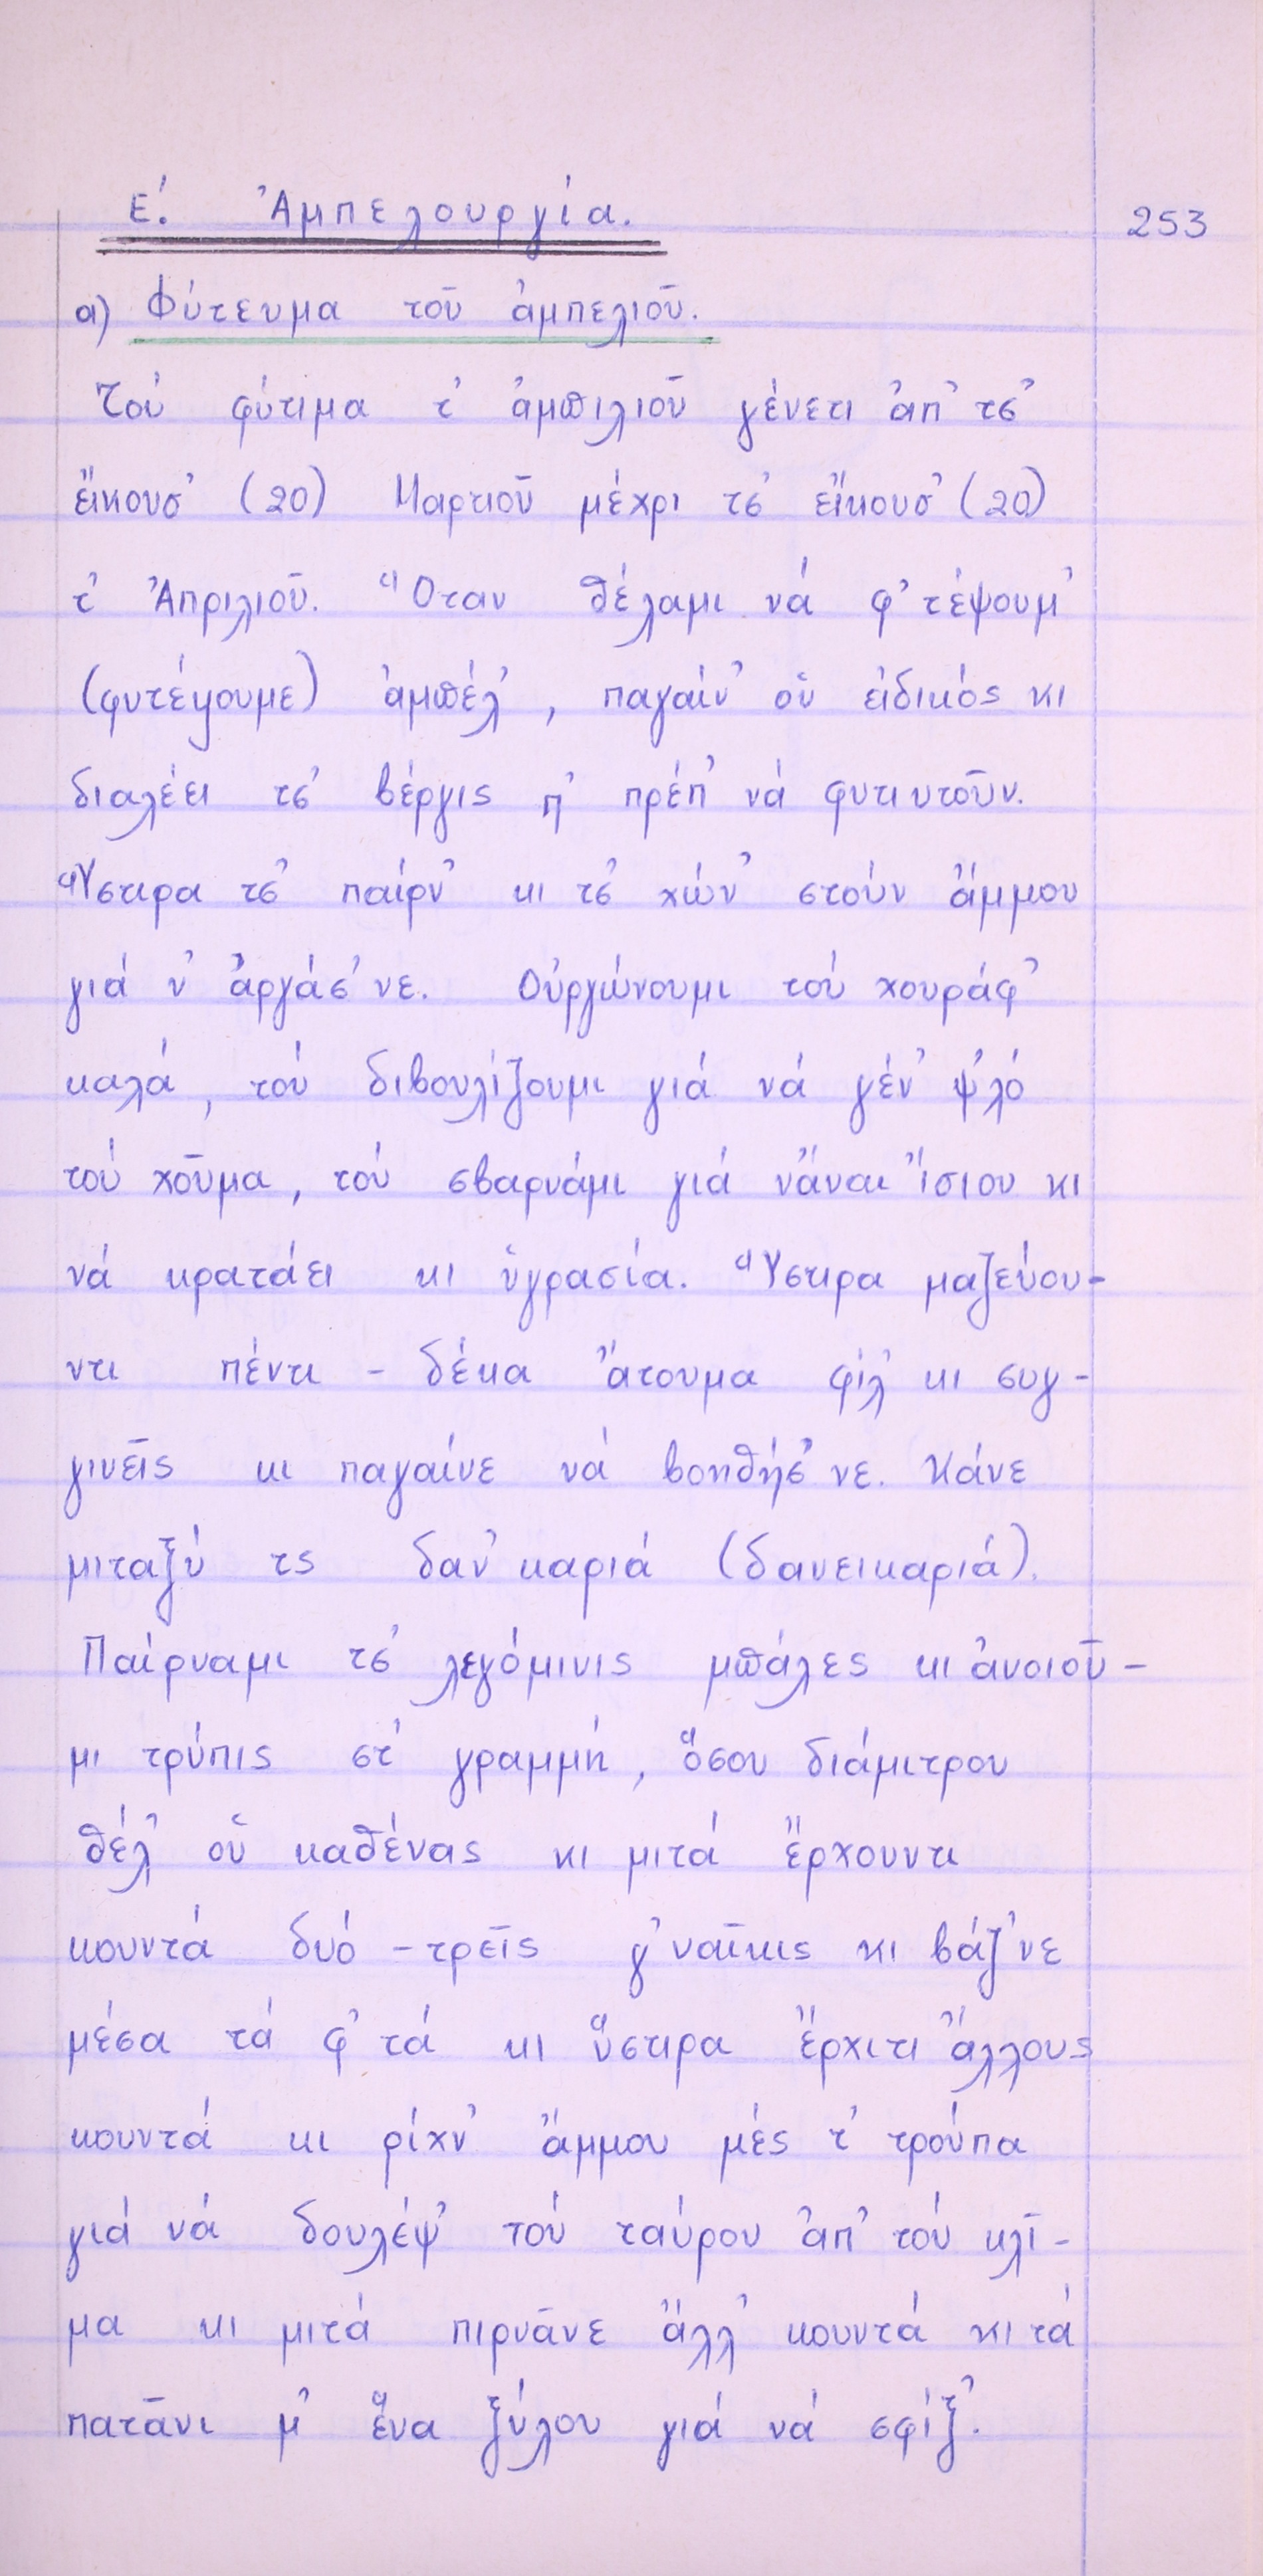 Ε΄. Ἀμπελουργία.
253
α) Φύτευμα τοῦ ἀμπελιοῦ.
Τού φύτιμα τ' ἀμπιλιοῦ γένετι ἀπ' τσ'
εἴκουσ' (20) Μαρτιοῦ μέχρι τσ' εἴκουσ' (20)
τ' Ἀπριλιοῦ. Ὅταν θέλαμι νά φ'τέψουμ'
(φυτέψουμε) ἀμπέλ', παγαίν' οὑ εἰδικός κι
διαλέει τσ' βέργις π' πρέπ' νά φυτιυτοῦν.
Ὕστιρα τσ' παίρν' κι τσ' χών' στούν ἄμμου
γιά ν' ἀργάσ'νε. Οὐργώνουμι τού χουράφ'
καλά, τού διβουλίζουμι γιά νά γέν' ψ'λό
τού χοῦμα, τού σβαρνάμι γιά νἄναι ἴσιου κι
νά κρατάει κι ὑγρασία. Ὕστιρα μαζεύου-
ντι πέντι - δέκα ἄτουμα φίλ' κι συγ-
γινεῖς κι παγαίνε νά βοηθήσ'νε. Κάνε
μιταξύ τς δαν'καριά (δανεικαριά).
Παίρναμι τσ' λεγόμινις μπάλες κι ἀνοιοῦ-
μι τρύπις στ' γραμμή, ὅσου διάμιτρου
θέλ' οὑ καθένας κι μιτά ἔρχουντι
κουντά δυό - τρεῖς γ'ναῖκις κι βάζ'νε
μέσα τά φ'τά κι ὕστιρα ἔρχιτι ἄλλους
κουντά κι ρίχν' ἄμμου μές τ' τρούπα
γιά νά δουλέψ' τού ταύρου ἀπ' τού κλῖ-
μα κι μιτά πιρνᾶνε ἄλλ' κουντά κι τά
πατᾶνι μ' ἕνα ξύλου γιά νά σφίξ'.